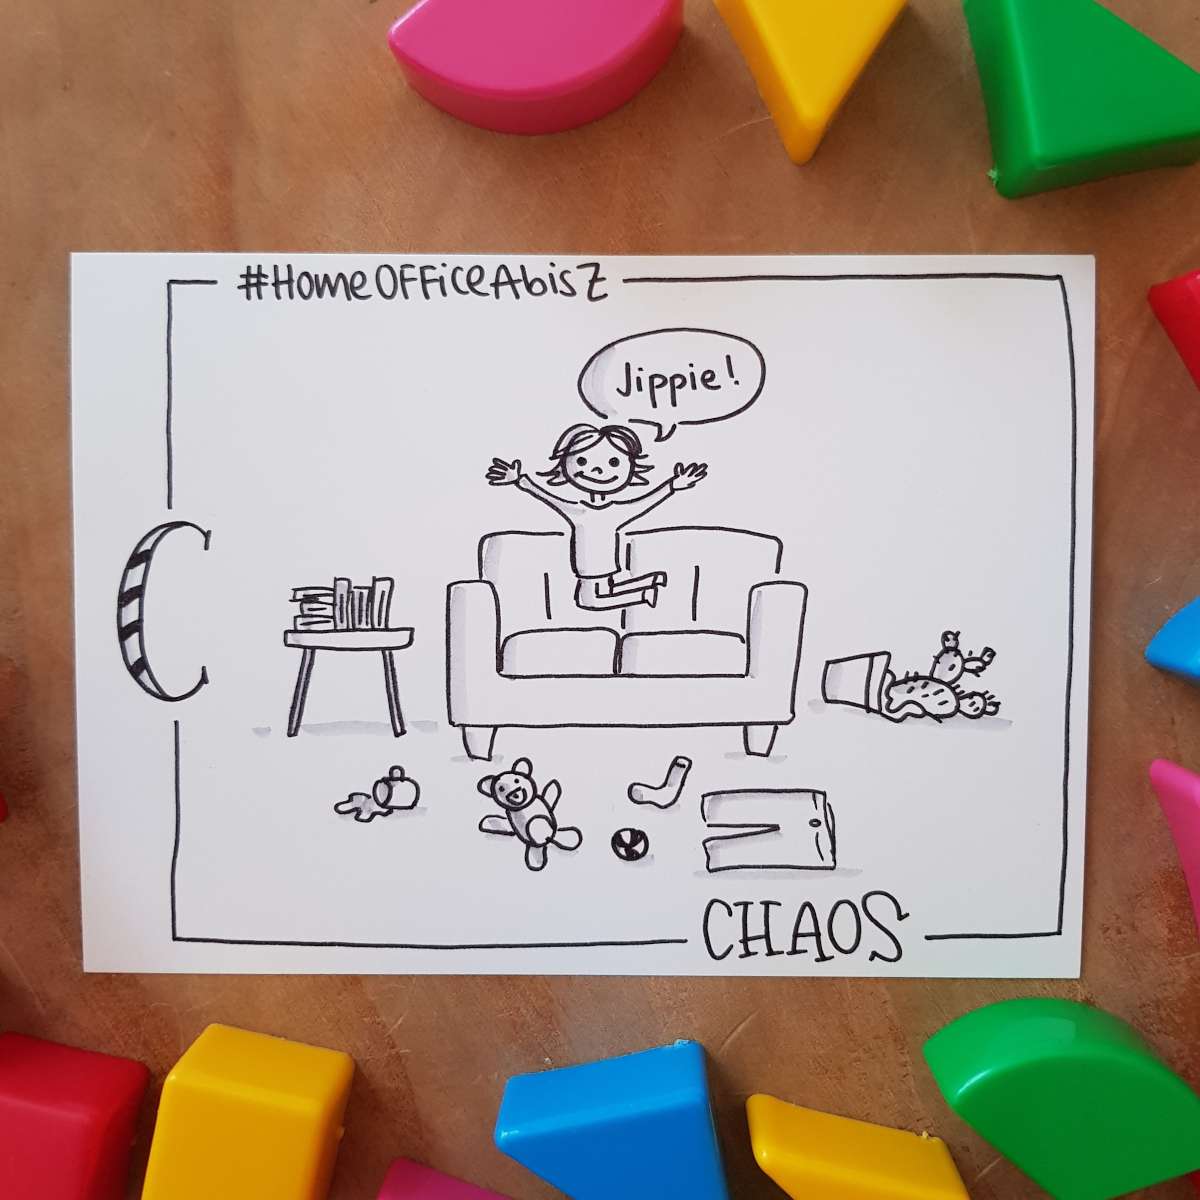 #HomeOFFiceAbisZ
Jippie!
C
CHAOS